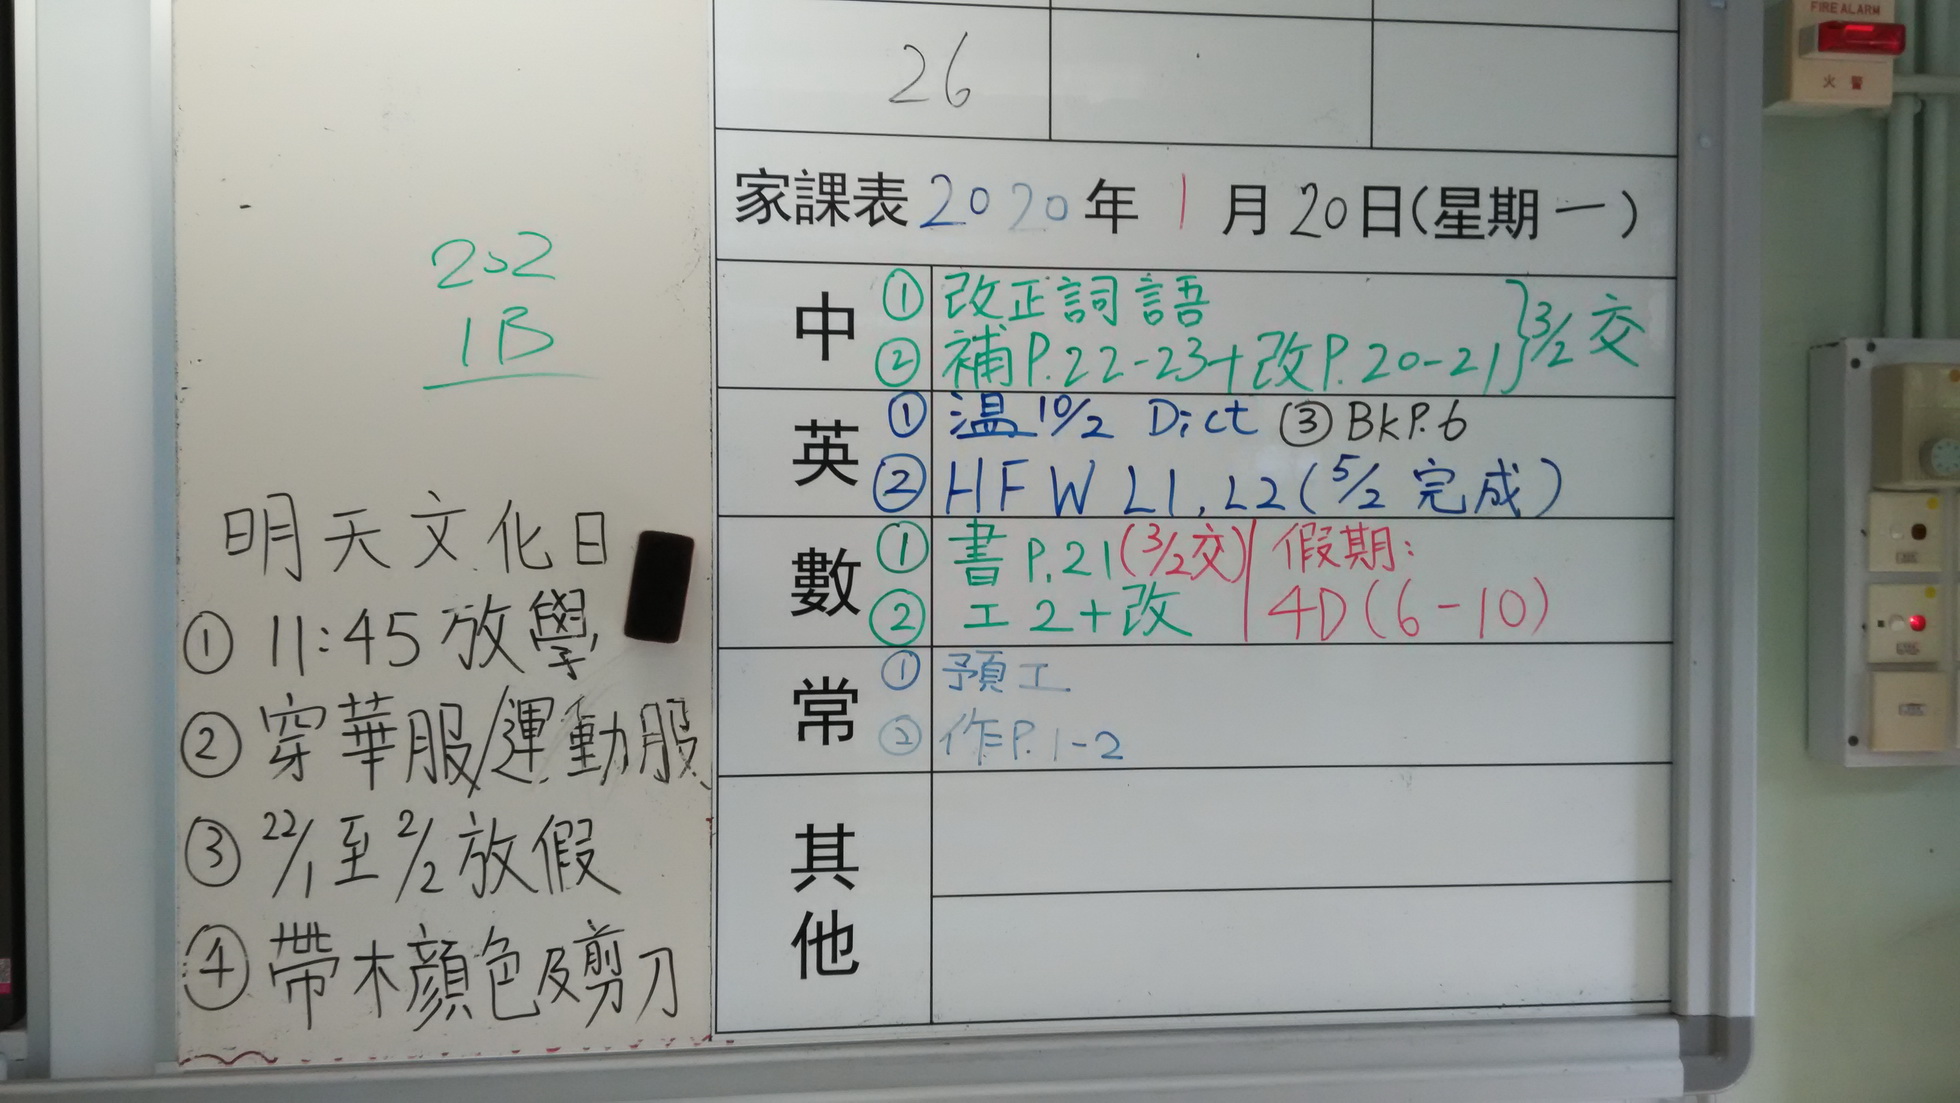 202
1B
明天文化日
① 11:45 放學
② 穿華服/運動服
③ 22/1 至 2/2 放假
④ 帶木顏色及剪刀
26
家課表 2020 年 1 月 20 日(星期一)
中 ① 改正詞語
② 補P.22-23+改P.20-21 } 3/2 交
英 ① 溫 10/2 Dict ③ BkP.6
② HFW L1, L2 (5/2 完成)
數 ① 書 P.21 (3/2交) | 假期:
② 工2+改 | 4D (6-10)
常 ① 預工
② 作P.1-2
其他
FIRE ALARM
火警